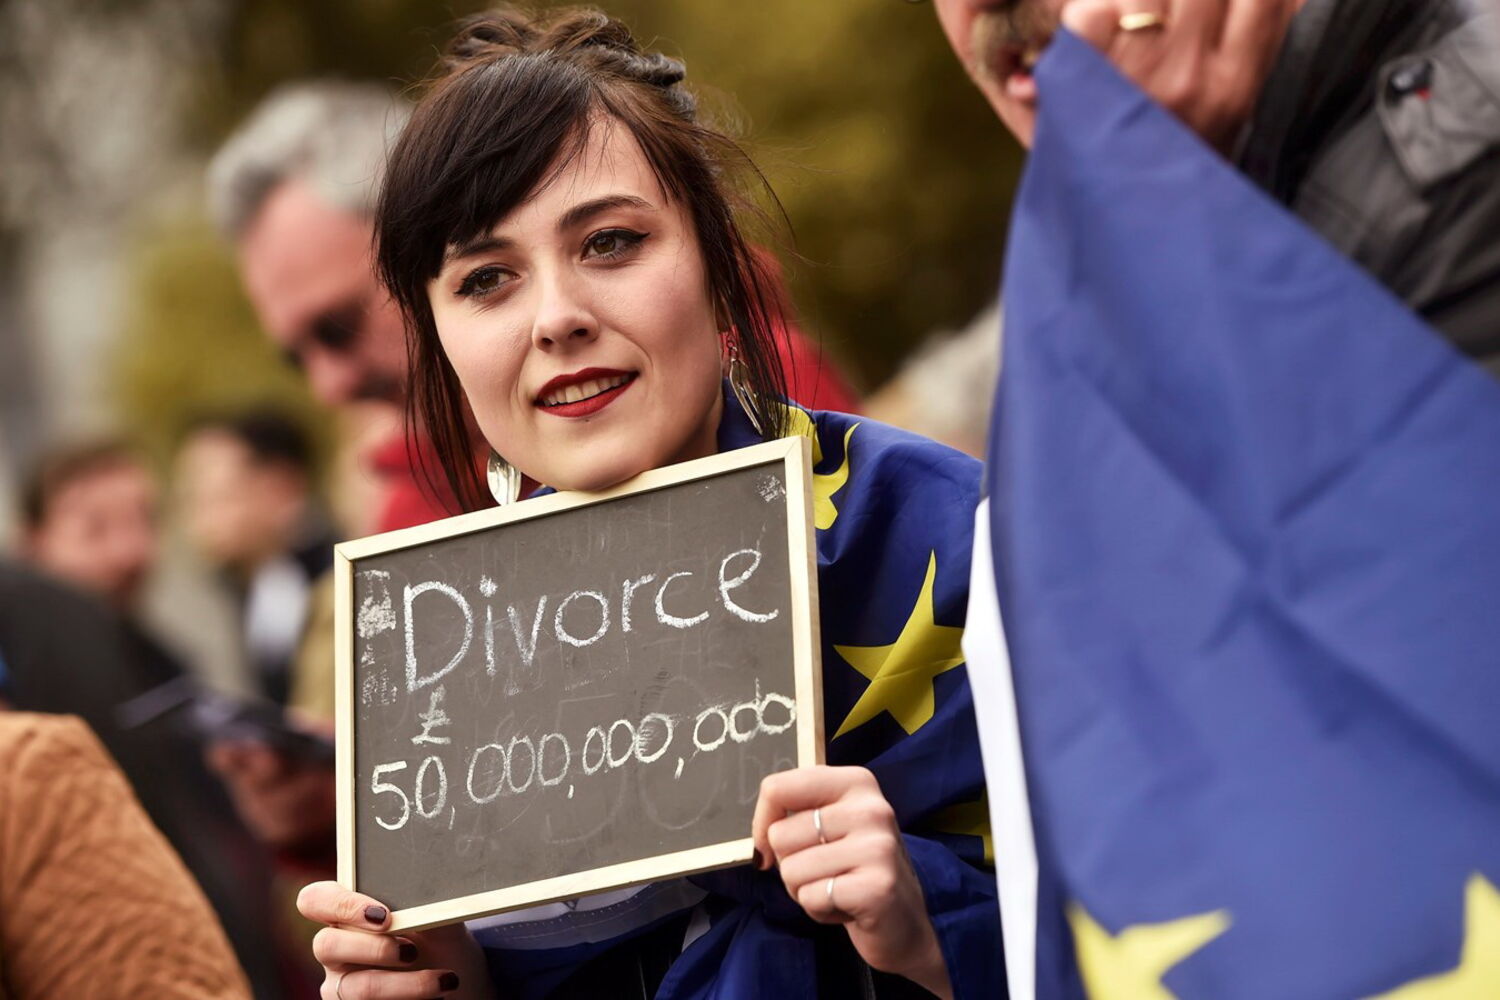 Divorce
£
50,000,000,000